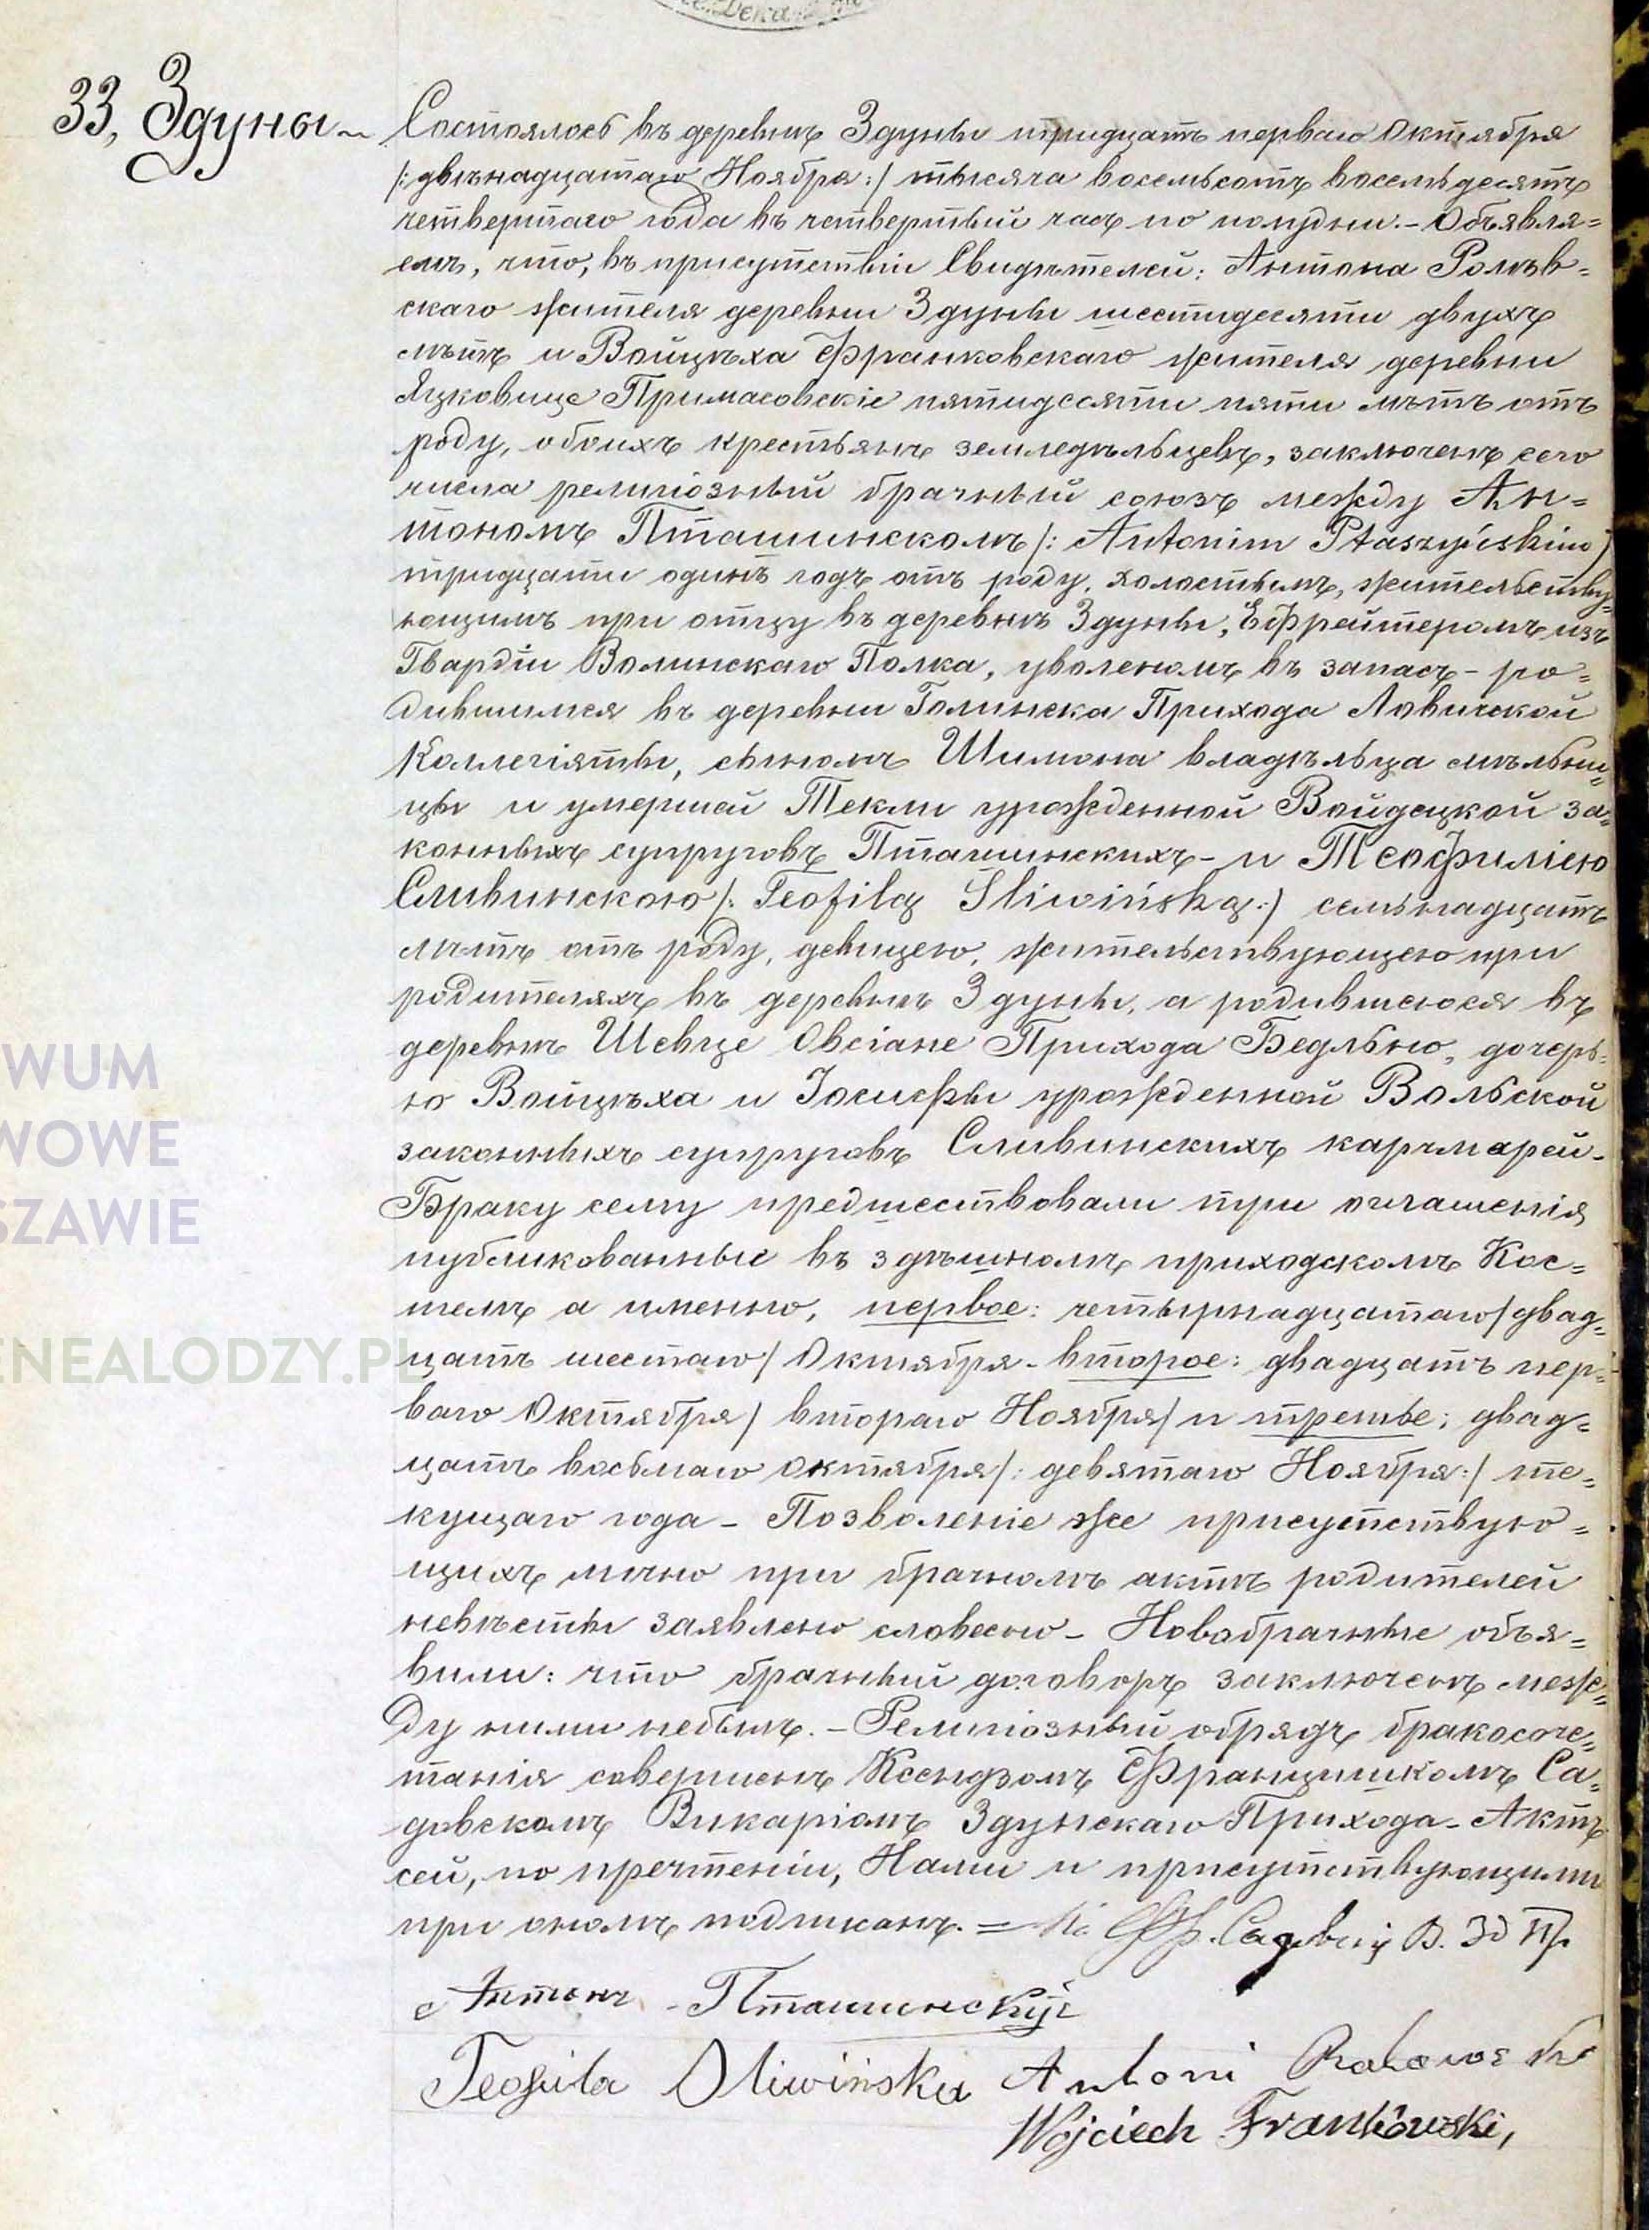 33, Здуны
Состоялось въ деревнѣ Здуны тридцать перваго Октября
/: двѣнадцатаго Ноября :/ тысяча восемьсотъ восемьдесятъ
четвертаго года въ четвертый часъ по полудни. - Объявля=
емъ, что, въ присутствіи Свидѣтелей: Антона
скаго жителя деревни Здуны шестидесяти двухъ
лѣтъ и Войцѣха Франковскаго жителя деревни
Яцковице Примасовскіе пятидесяти пяти лѣтъ отъ
роду, обоихъ крестьянъ земледѣльцевъ, заключенъ сего
числа религіозный брачный союзъ между Ан=
тономъ Пташинскомъ /: Antonim Ptaszyńskim
тридцати одинъ годъ отъ роду, холостымъ, жительству=
ющимъ при отцу въ деревнѣ Здуны, Ефрейтеромъ изъ
Гвардіи Волинскаго Полка, уволеномъ въ запасъ - ро=
дившимся въ деревни Голинска Прихода Ловичской
Коллегіяты, сыномъ Шимона владѣльца мѣльни=
цы и умершой Текли урожденной Войдецкой за=
конныхъ супруговъ Пташинскихъ - и Теофиліею
Сливинскою /: Teofilą Śliwińską :/ семьнадцать
лѣтъ отъ роду, девицею, жительствующею при
родителяхъ въ деревнѣ Здуны, а родившеюся въ
деревнѣ Шевце Овсіане Прихода Бедльно, дочерь=
ю Войцѣха и Іосифы урожденной Вольской
законныхъ супруговъ Сливинскихъ карчмарей -
Браку сему предшествовали три оглашенія
публикованные въ здѣшномъ приходскомъ Кос=
телѣ а именно, первое: четырнадцатаго / двад=
цать шестаго / Октября - второе: двадцать пер=
ваго Октября / втораго Ноября / и третье: двад=
цать восьмаго Октября /: девятаго Ноября :/ те=
кущаго года - Позволеніе же присутствую=
щихъ лично при брачномъ актѣ родителей
невѣсты заявлено словесно - Новобрачные объя=
вили: что брачный договоръ заключенъ меж=
ду ними небылъ. - Религіозный обрядъ бракосоче=
танія совершенъ Ксендзомъ Францишкомъ Са=
довскомъ Викаріомъ Здунскаго Прихода - Актъ
сей, по прочтеніи, Нами и присутствующими
при ономъ подписанъ. = Кс Фр. Садовскій В. Зд Пр
Антонъ Пташинскій
Teofila Sliwińska Antoni
Wojciech Frankowski,
WUM
WOWE
SZAWIE
ENEALODZY.PL